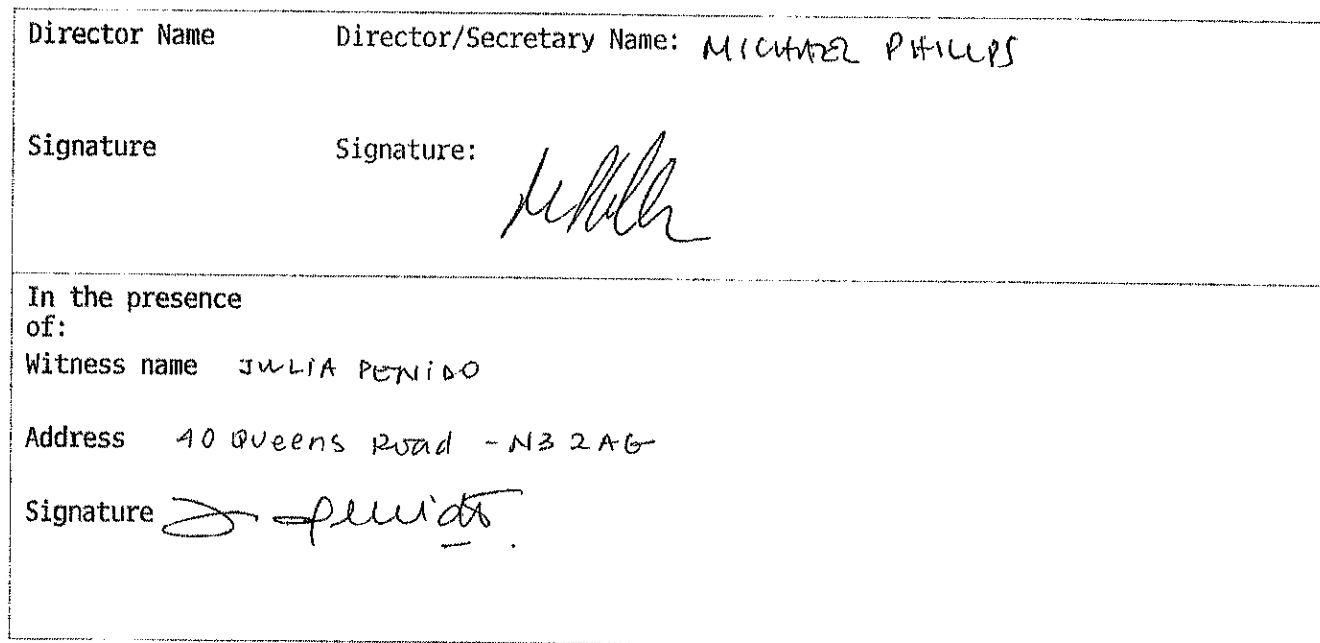 Director Name Director/Secretary Name: MICHAEL PHILLIPS
Signature Signature:
In the presence
of:
Witness name JULIA PENIDO
Address 40 Queens Road - N3 2AG
Signature J Penido